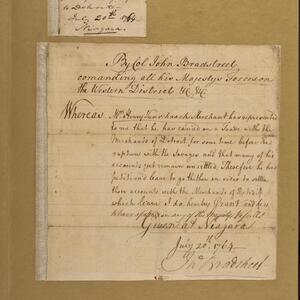 to Detroit
July 20th 1764
Niagara
By Col John Bradstreet
comanding all his Majestys Forces on
the Western District &c &c
Whereas Mr Henry Van Schaack Merchant has represented
to me that he has carried on a trade with the
Merchands of Detroit for some time before the
rupture with the Savages and that many of his
accounts yet remain unsettled, Therefore he has
petitioned leave to go thither in order to settle
those accounts with the Merchands of Detroit
which leave I do hereby Grant and
any of his Majestys
Given at Niagara
July 20th 1764
Jno Bradstreet